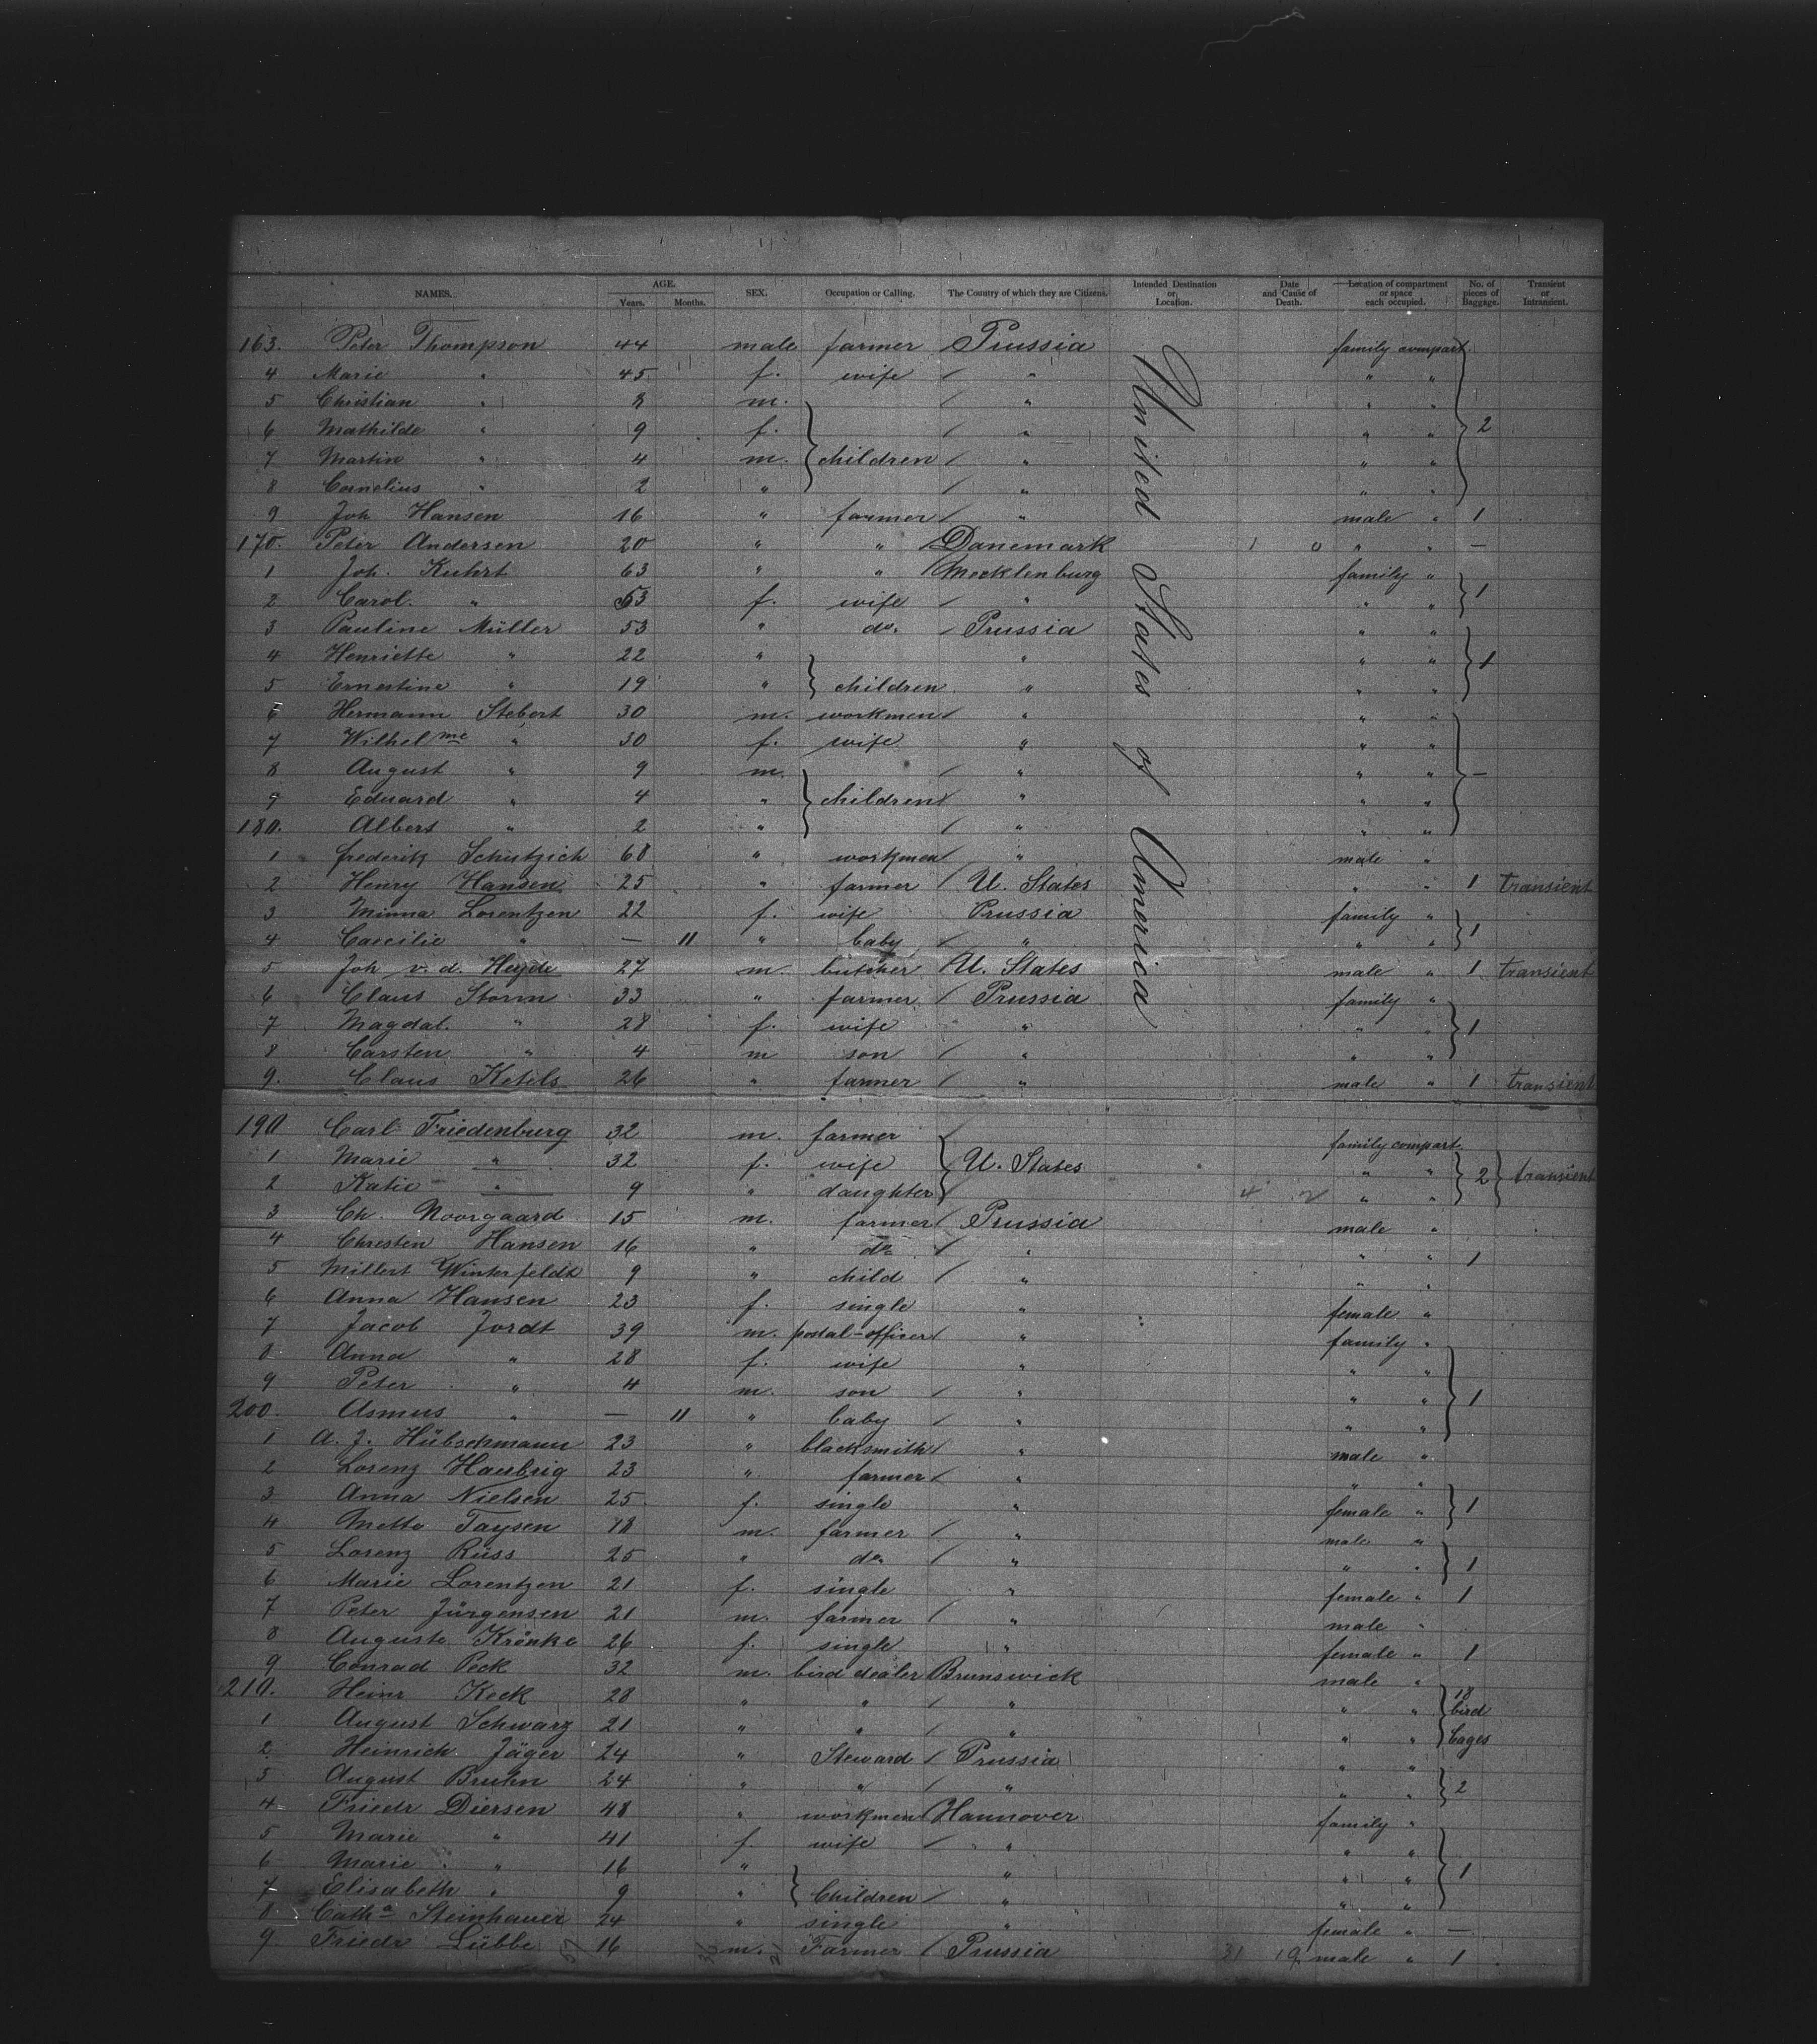 NAMES. AGE. SEX. Occupation or Calling. The Country of which they are Citizens. Intended Destination or Location. Date and Cause of Death. Location of compartment or space each occupied. No. of pieces of Baggage. Transient or Intransient.
Years. Months.
United States of America
163. Peter Thompson 44 male farmer Prussia family compart.
4 Marie " 45 f. wife " " "
5 Christian " 8 m. " " "
6 Mathilde " 9 f. " " " 2
7 Martin " 4 m. children " " "
8 Cornelius " 2 " " " "
9 Joh Hansen 16 " farmer " male " 1
170. Peter Andersen 20 " " Danemark 1 0 " " —
1 Joh. Kuhrt 63 " " Mecklenburg family "
2 Carol. " 53 f. wife " " " 1
3 Pauline Müller 53 " do. Prussia " "
4 Henriette " 22 " " " " 1
5 Ernestine " 19 " children " " "
6 Hermann Stebert 30 m. workmen " " "
7 Wilhelme " 30 f. wife " " "
8 August " 9 m. " " " —
9 Eduard " 4 " children " " "
180. Albert " 2 " " " "
1 frederik Schutzich 68 " workmen " male "
2 Henry Hansen 25 " farmer U. States " " 1 transient
3 Minna Lorentzen 22 f. wife Prussia family "
4 Caecilie " — 11 " baby " " " 1
5 Joh v. d. Heyde 27 m. butcher U. States male " 1 transient
6 Claus Storm 33 " farmer Prussia family "
7 Magdal. " 28 f. wife " " " 1
8 Carsten " 4 m son " " "
9. Claus Ketels 26 " farmer " male " 1 transient
190 Carl Friedenburg 32 m. farmer family compart.
1 Marie " 32 f. wife U. States " " 2 transient
2 Katie " 9 " daughter 4 2 " "
3 Ch. Noorgaard 15 m. farmer Prussia male "
4 Chresten Hansen 16 " do " " " 1
5 Millert Winterfeldt 9 " child " " "
6 Anna Hansen 23 f. single " female "
7 Jacob Jordt 39 m. postal-officer " family "
8 Anna " 28 f. wife " " "
9 Peter " 4 m. son " " " 1
200. Asmus " — 11 " baby " " "
1 A. J. Hübschmann 23 " blacksmith " male "
2 Lorenz Haubrig 23 " farmer " " "
3 Anna Nielsen 25 f. single " female " 1
4 Mette Taysen 18 m. farmer " male "
5 Lorenz Rüss 25 " do " " " 1
6 Marie Lorentzen 21 f. single " female " 1
7 Peter Jürgensen 21 m. farmer " male "
8 Auguste Krönke 26 f. single " female " 1
9 Conrad Peck 32 m. bird dealer Brunswick male "
210. Heinr Keck 28 " " " " " 18 bird
1 August Schwarz 21 " " " " " Cages
2 Heinrich Jäger 24 " Steward Prussia " "
3 August Bruhn 24 " " " " " 2
4 Friedr Diersen 48 " workmen Hannover family "
5 Marie " 41 f wife " " "
6 Marie " 16 " " " " 1
7 Elisabeth " 9 " Children " " "
8 Catha Steinhauer 24 " single " female " —
9 Friedr Lübbe 16 m. Farmer Prussia 31 19 male " 1